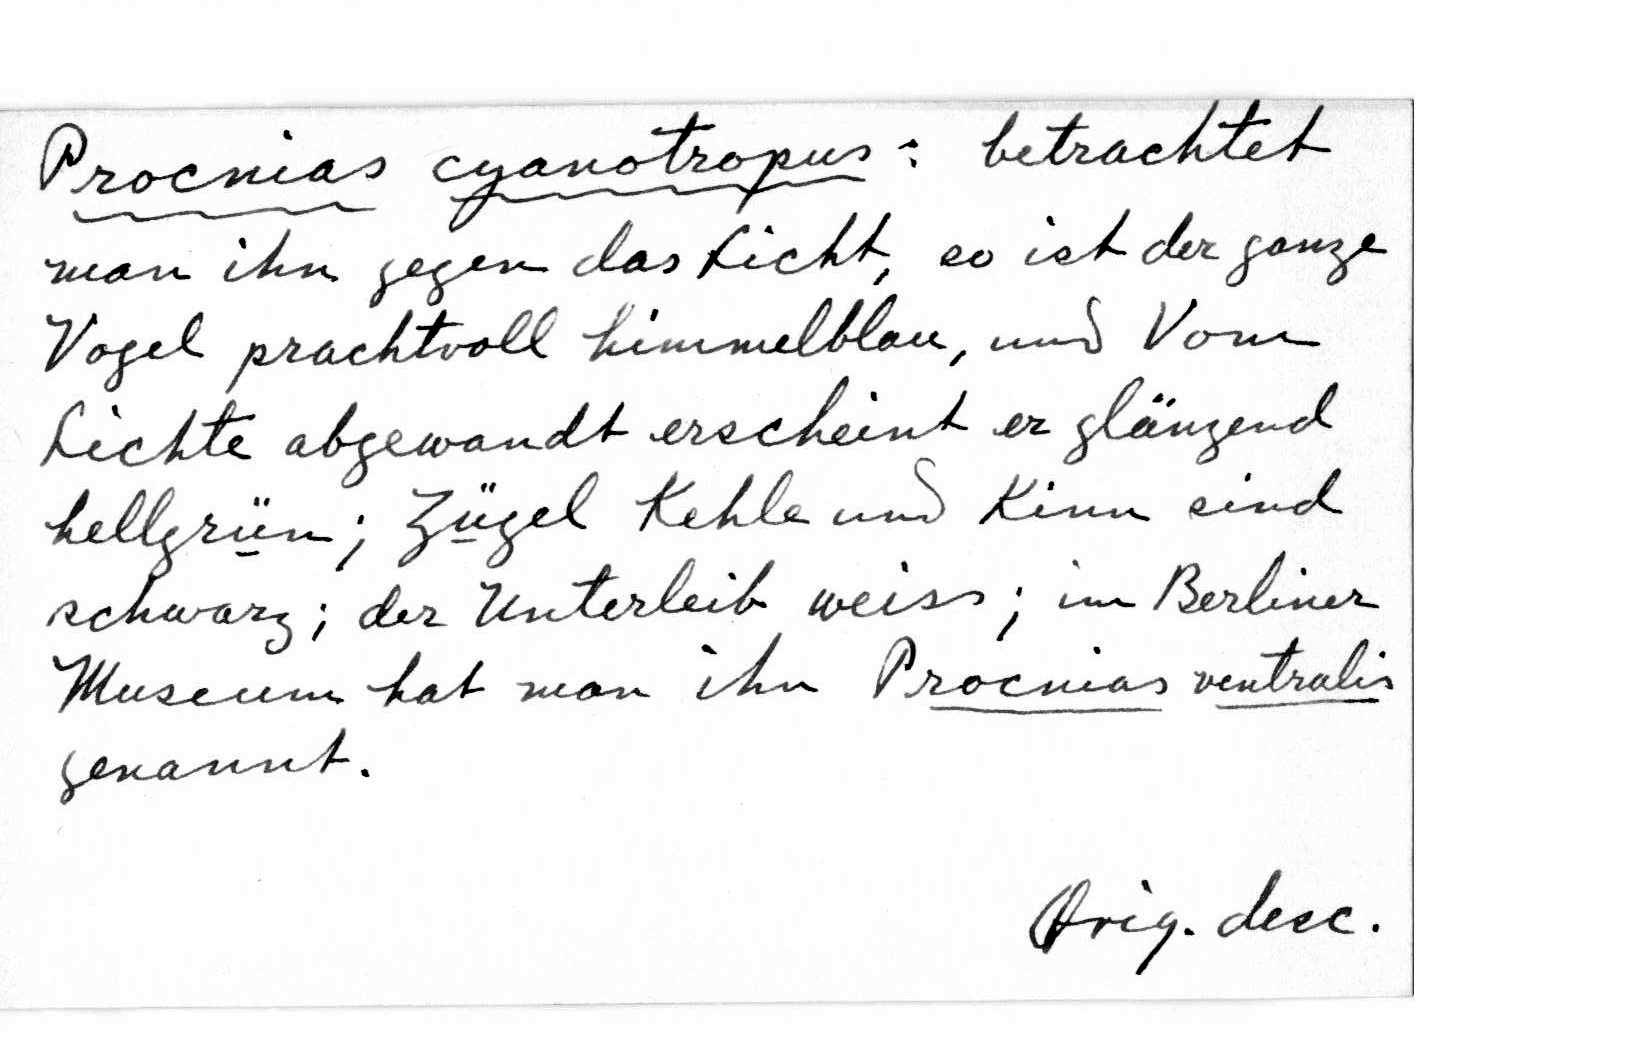 Procnias cyanotropus: betrachtet
man ihn gegen das Licht, so ist der ganze
Vogel prachtvoll himmelblau, und Vom
Lichte abgewandt erscheint er glänzend
hellgrün; Zügel Kehle und Kinn sind
schwarz; der Unterleib weiss; im Berliner
Museum hat man ihn Procnias ventralis
genannt.
Orig. desc.